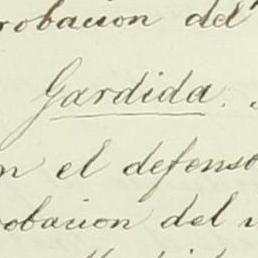 robacion del
Gardida.
n el defenso
robacion del